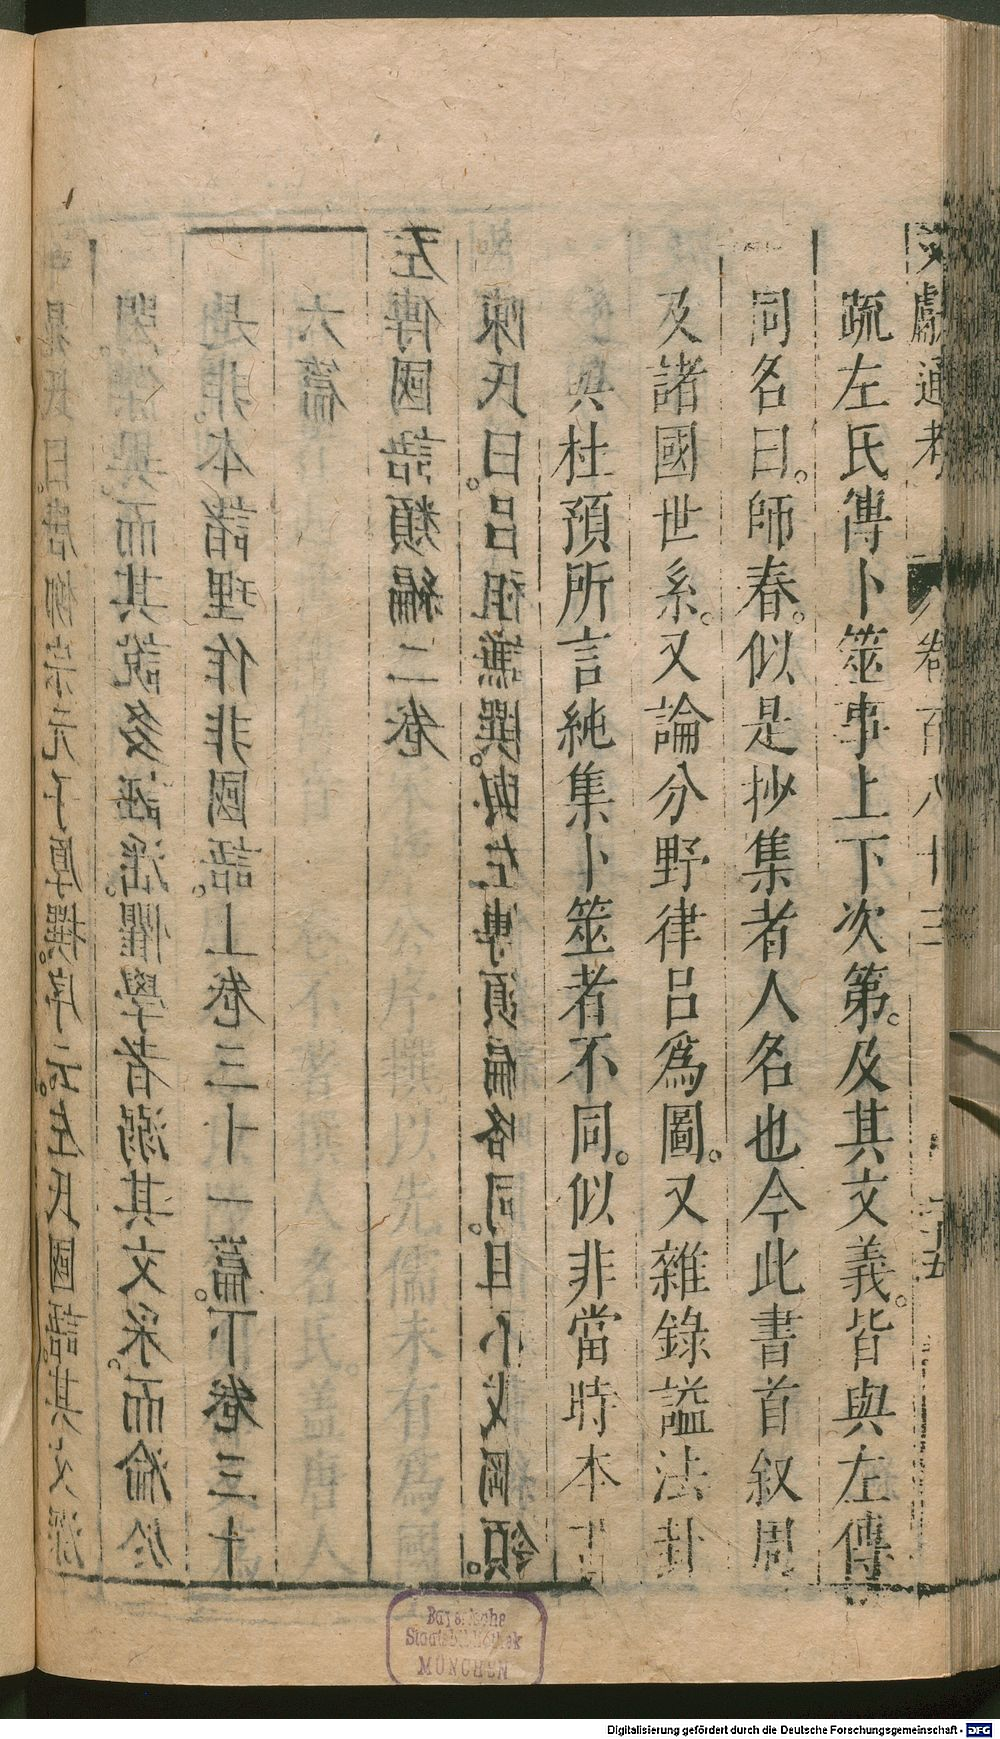 文獻通考 卷百八十三 二十五
疏左氏傳卜筮事上下次第。及其文義。皆與左傳
同名曰。師春。似是抄集者人名也今此書首叙周
及諸國世系。又論分野律呂爲圖。又雜錄謚法卦
與杜預所言純集卜筮者不同。似非當時本
晁氏曰。唐柳宗元子厚撰。序云。左氏國語。其文深
閎。深異。而其說多誣淫。懼學者溺其文采。而淪於
是非。本諸理作非國語。上卷三十一篇。下卷三十
六篇
左傳國語類編二卷
陳氏曰。呂祖謙撰。與左傳類編略同。但不載綱領。
Bayerische
Staatsbibliothek
MÜNCHEN
Digitalisierung gefördert durch die Deutsche Forschungsgemeinschaft - DFG